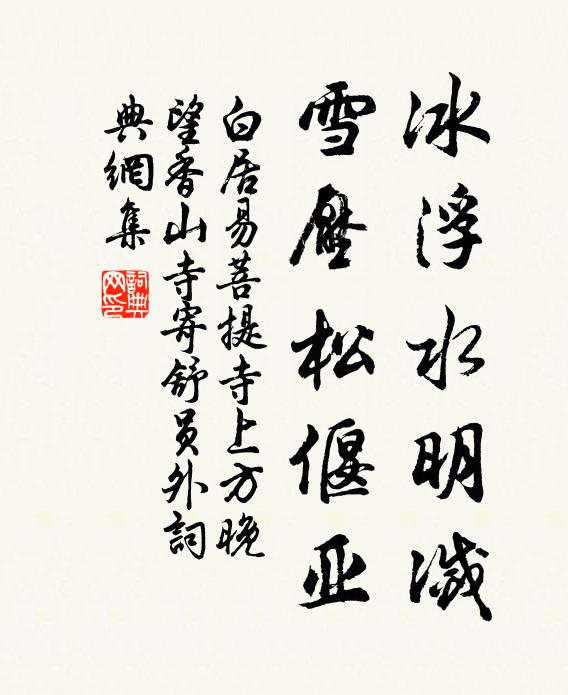 冰浮水明滅
雪壓松偃亚
白居易菩提寺上方晚
望香山寺寄舒員外詞
典網集
詞典网印